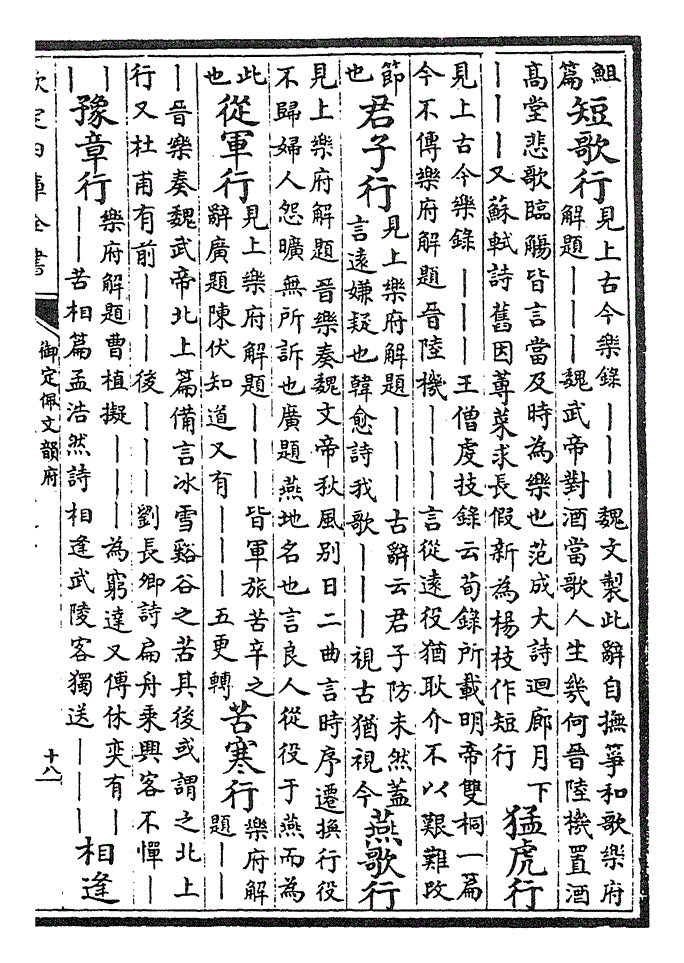 䱉
篇
短歌行
見上古今樂錄丨丨丨魏文製此辭自撫箏和歌樂府
解題丨丨丨魏武帝對酒當歌人生幾何晉陸機置酒
高堂悲歌臨觴皆言當及時為樂也范成大詩迴廊月下
丨丨丨又蘇軾詩舊因蓴菜求長假新為楊枝作短行
猛虎行
見上古今樂錄丨丨丨王僧虔技錄云荀錄所載明帝雙桐一篇
今不傳樂府解題晉陸機丨丨丨言從遠役猶耿介不以艱難改
節
也
君子行
見上樂府解題丨丨丨古辭云君子防未然蓋
言遠嫌疑也韓愈詩我歌丨丨丨視古猶視今
燕歌行
見上樂府解題晉樂奏魏文帝秋風別日二曲言時序遷換行役
不歸婦人怨曠無所訴也廣題燕地名也言良人從役于燕而為
此
也
從軍行
見上樂府解題丨丨丨皆軍旅苦辛之
辭廣題陳伏知道又有丨丨丨五更轉
苦寒行
樂府解
題丨丨
丨晉樂奏魏武帝北上篇備言冰雪谿谷之苦其後或謂之北上
行又杜甫有前丨丨丨後丨丨丨劉長卿詩扁舟乘興客不憚丨
丨
丨
豫章行
樂府解題曹植擬丨丨丨為窮達又傅休奕有丨
丨丨苦相篇孟浩然詩相逢武陵客獨送丨丨丨
相逢
欽定四庫全書
御定佩文韻府
十八